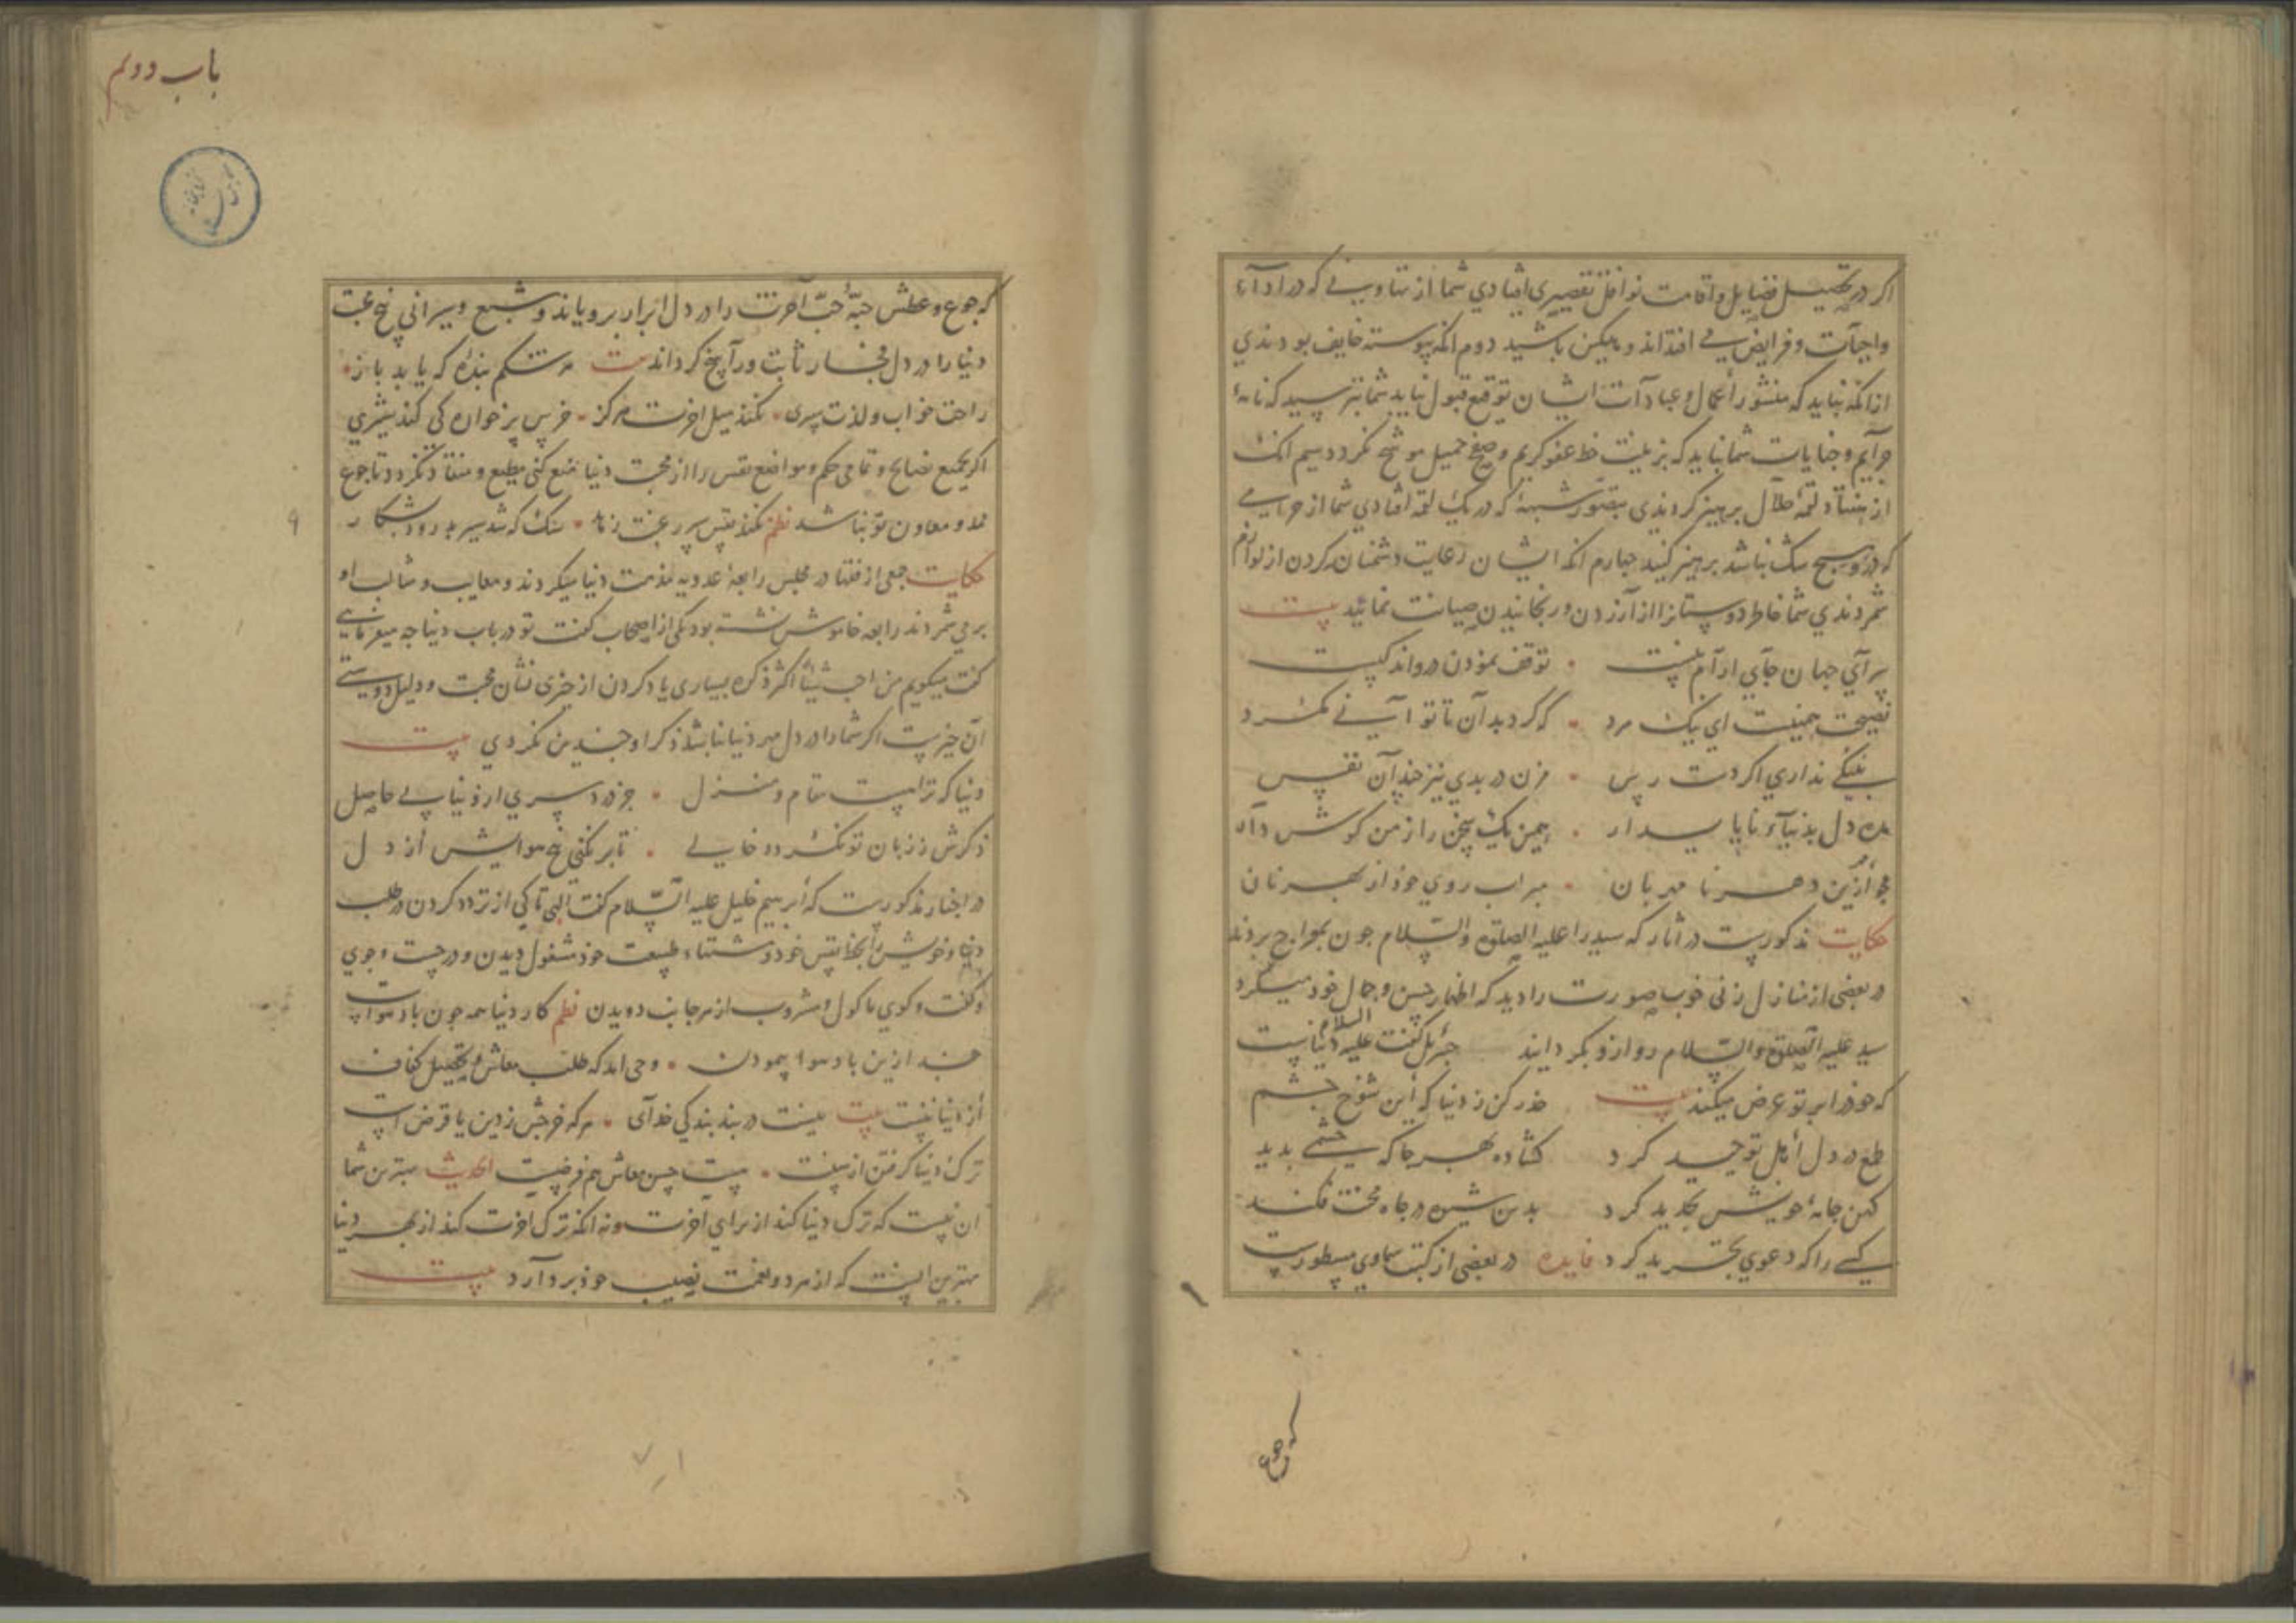 اکر در تحصیل فضایل و اقامت نوافل تقصیری افتادی شما از تهاونی که در ادآء
واجبات و فرایض می افتد اندوهکین باشید دوم انکه پیوسته خایف بودندی
ازانکه نباید که منشور اعمال و عبادات ایشان توقیع قبول نیابد شما بترسید که نامهٔ
جرایم و جنایات شما نباید که بزینت خط عفو کریم و صفح جمیل موشح نکردد سیم انک
از هفتاد لقمه حلال پرهیز کردندی بتصور شبههٔ که در یک لقمه افتادی شما از حرامی
که درو هیچ شک نباشد پرهیز کنید چهارم انکه ایشان رعایت دشمنان کردن از لوازم
شمردندی شما خاطر دوستانرا از آزردن و رنجانیدن صیانت نمائید بیت
سرآی جهان جآی ارآم نیست توقف نمودن درو اندکیست
نصیحت همینست ای نیک مرد که کرد بدآن تا توانی مکرد
بنیکی نداری اکر دست رس مزن در بدی نیز چندآن نفس
مده دل بدنیآء ناپایدار همین یک سخن را ز من کوش دار
مجو ازین دهر نامهربان مبر آب روی خود از بهر نان
حکایت مذکورست در اثار که سید را علیه الصلوة والسلام چون بمعراج بردند
در بعضی از منازل زنی خوب صورت را دید که اظهار حسن و جمال خود میکرد
سید علیه الصلوة والسلام رو ازو بکردانید جبرئیل کفت علیه السلام دنیاست
که خود را بر تو عرض میکند بیت حذر کن ز دنیا که این شوخ چشم
طمع در دل اهل توحید کرد کشاده بهر جا که چشمی بدید
کهن جامهٔ خویش تجدید کرد بدین شیوه در چاه محنت فکند
کسی را که دعوی تجرید کرد فایده در بعضی از کتب سماوی مسطورست
که جوع
باب دویم
که جوع و عطش حبّهٔ حبّ آخرت را در دل ابرار برویاند و شبع و سیرانی نخ محبت
دنیا را در دل فجار ثابت و راسخ کرداند بیت هر شکم بنده که یابد باز
راحت خواب و لذت سیری نکند میل اخرت هرکز خرس پرخواره کی کند شیری
اکر بجمیع نصایح و تمامی حکم و مواعظ نفس را از محبت دنیا منع کنی مطیع و منقاد نکردد تا جوع
ممد و معاون تو نباشد نظم نکند نفس سیر رغبت زهد سک که شد سیر بد رود شکار
حکایت جمعی از فقها در مجلس رابعهٔ عدویه مذمت دنیا میکردند و معایب و مثالب او
برمی شمردند رابعه خاموش نشسته بود یکی از اصحاب کفت تو در باب دنیا چه میفرمایی
کفت میکویم من احبّ شیئا اکثر ذکره بسیاری یاد کردن از چیزی نشان محبت و دلیل دوستی
آن چیزست اکر شما را در دل مهر دنیا نباشد ذکر او چندین نکردی بیت
دنیا که تراست مقام و منزل جز درد سری از دنیا بی حاصل
ذکرش ز زبان تو نکردد خالی تا بر نکنی نخ هوایش از دل
در اخبار مذکورست که ابرهیم خلیل علیه السّلام کفت الهی تا کی از تردد کردن در طلب
دنیا و خویش را بحظ نفس خود و مشتهاء طبیعت خود مشغول دیدن و در جست و جوی
و کفت و کوی ماکول و مشروب از هر جانب دویدن نظم کار دنیا همه چون باد هواست
چند ازین باد هوا پیمودن وحی امد که طلب معاش و تحصیل کفاف
از دنیا نیست بیت نیست در بند بندکی خدآی هر که خرجش ز دین یا قرض است
ترک دنیا کرفتن از سنت نیست حسن معاش هم فرضیست الحدیث بهترین شما
ان نیست که ترک دنیا کند از برای آخرت و نه انکه ترک اخرت کند از بهر دنیا
بهترین انست که از هر دو نعمت نصیب خود بردارد بیت